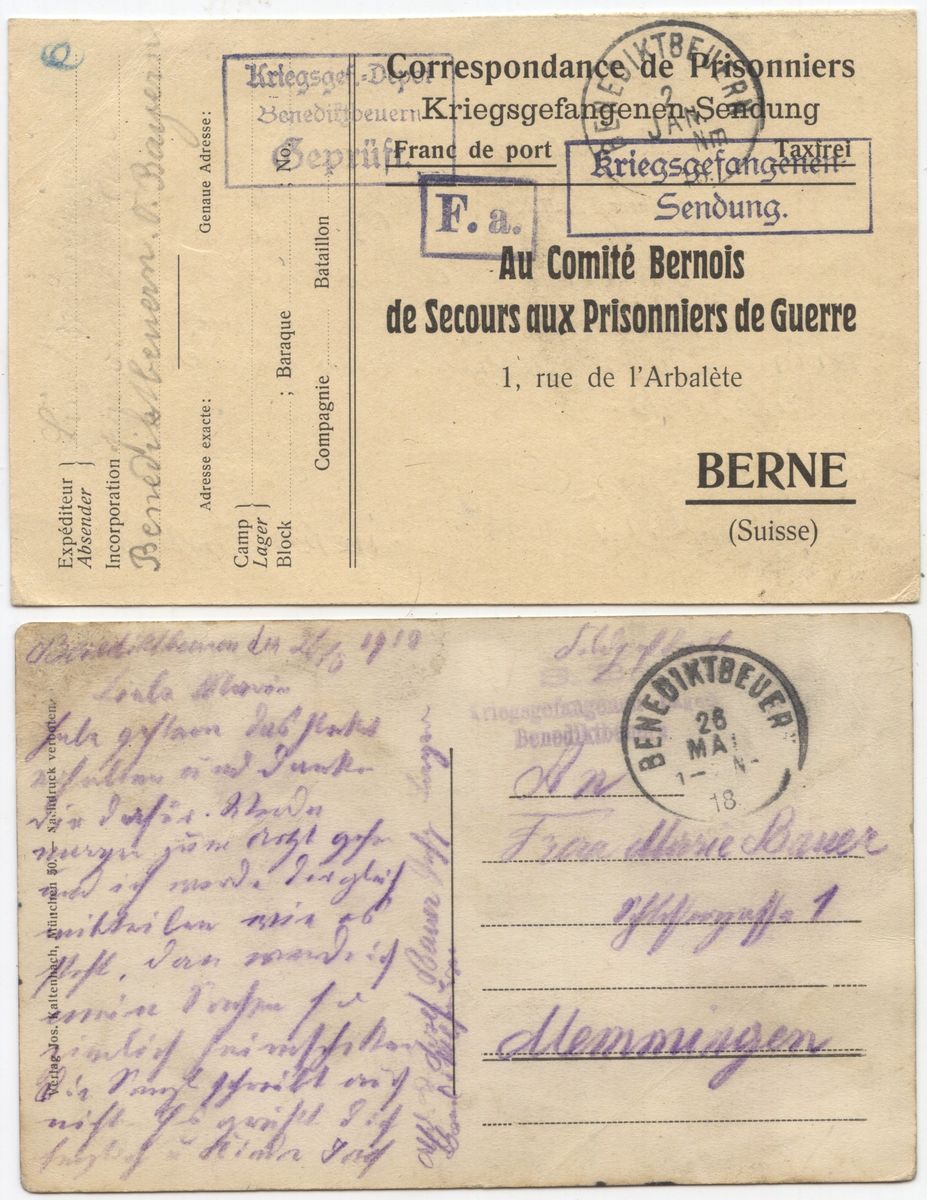 Correspondance de Prisonniers
Kriegsgefangenen-Sendung
Franc de port Taxfrei
Au Comité Bernois
de Secours aux Prisonniers de Guerre
1, rue de l'Arbalète
BERNE
(Suisse)
Kriegsgef.-Depot
Benediktbeuern
Geprüft
F. a.
Kriegsgefangenen-
Sendung.
BENEDIKTBEUERN
2
JAN
Expéditeur
Absender
Incorporation
Benediktbeuern. O. Bayern
Genaue Adresse:
Adresse exacte:
Camp
Lager
Block ; Baraque ; No.
Compagnie Bataillon
Benediktbeuern den 1918
Liebe Marie
habe gestern das Paket
erhalten und danke
dir dafür. Werde
morgen zum Arzt gehn
und ich werde dir gleich
mitteilen wie es
steht, dan werde ich
meine Sachen
heimschicken
Die schreibt auch
nicht Es grüßt Dich
herzlich
Josef Bauer
Verlag Jos. Kaltenbach, München 50. — Nachdruck verboten.
Kriegsgefangenen
Benediktbeuern
BENEDIKTBEUERN
26
MAI
18
An
Frau Marie Bauer
1
Memmingen